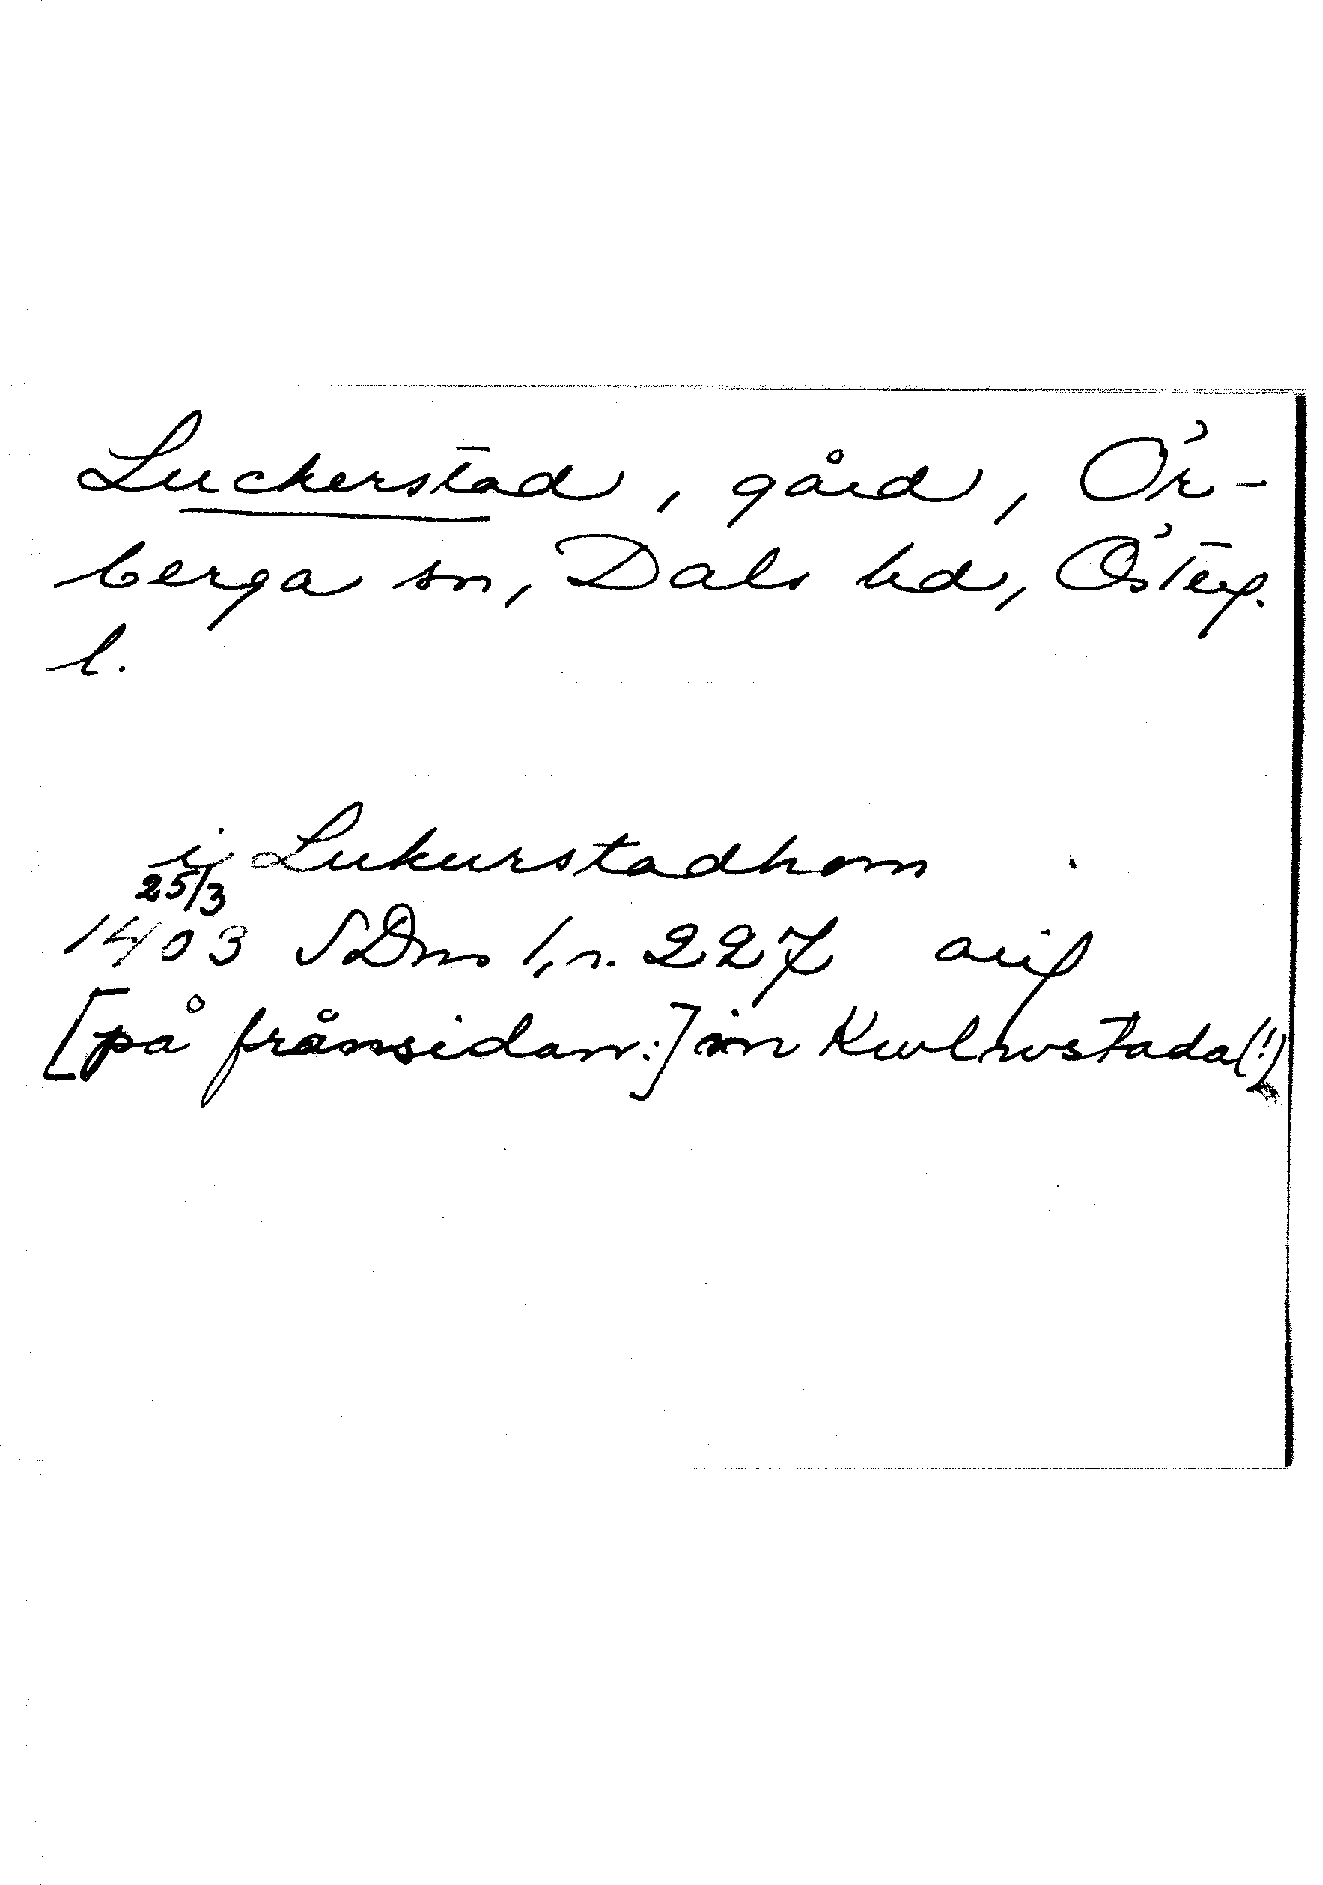 Luckerstad, gård, Ör-
berga sn, Dals hd, Österg.
l.
i Lukurstadhom
25/3
1403 SDns 1, n. 227 orig
[på frånsidan:] in Kwlwstada(!)